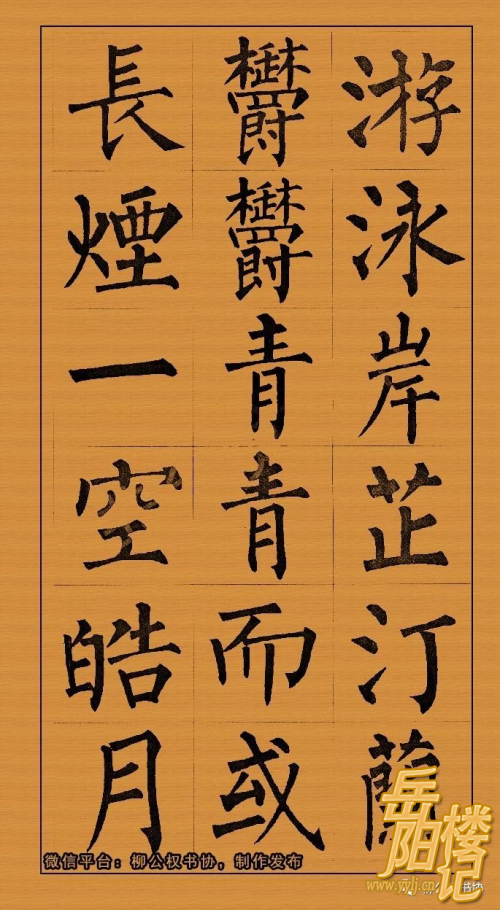 游泳岸芷汀蘭
鬱鬱青青而或
長煙一空皓月
微信平台：柳公权书协，制作发布
岳阳楼记
www.yylj.cn
书协